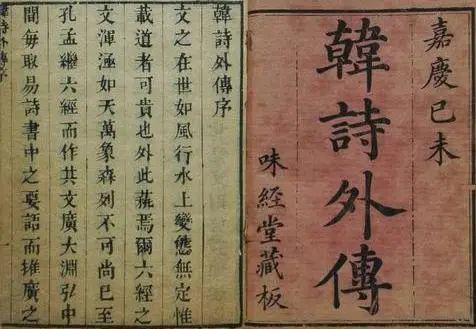 嘉慶已未
韓詩外傳
味經堂藏板
韓詩外傳序
文之在世如風行水上變態無定惟
載道者可貴也外此蕪焉爾六經之
文渾涵如天萬象森列不可尚已至
孔孟繼六經而作其文廣大淵弘中
間每取易詩書中之要語而推廣之
韓詩外傳序